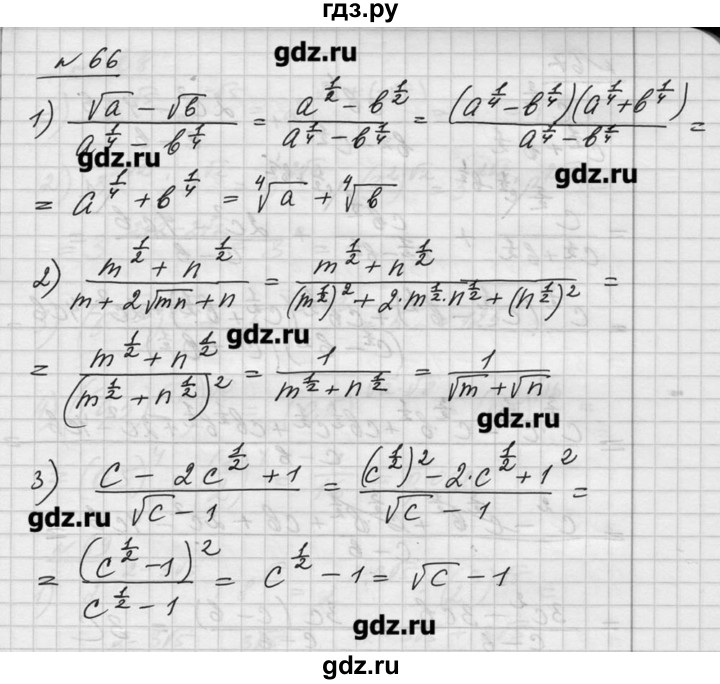 гдз.ру
№ 66
gdz.ru
1) (√a − √b)/(a^(1/4) − b^(1/4)) = (a^(1/2) − b^(1/2))/(a^(1/4) − b^(1/4)) = ((a^(1/4) − b^(1/4))(a^(1/4) + b^(1/4)))/(a^(1/4) − b^(1/4)) =
gdz.ru
gdz.ru
= a^(1/4) + b^(1/4) = ⁴√a + ⁴√b
2) (m^(1/2) + n^(1/2))/(m + 2√mn + n) = (m^(1/2) + n^(1/2))/((m^(1/2))² + 2·m^(1/2)·n^(1/2) + (n^(1/2))²) =
gdz.ru
= (m^(1/2) + n^(1/2))/(m^(1/2) + n^(1/2))² = 1/(m^(1/2) + n^(1/2)) = 1/(√m + √n)
gdz.ru
3) (c − 2c^(1/2) + 1)/(√c − 1) = ((c^(1/2))² − 2·c^(1/2) + 1²)/(√c − 1) =
gdz.ru
= (c^(1/2) − 1)²/(c^(1/2) − 1) = c^(1/2) − 1 = √c − 1
gdz.ru
gdz.ru